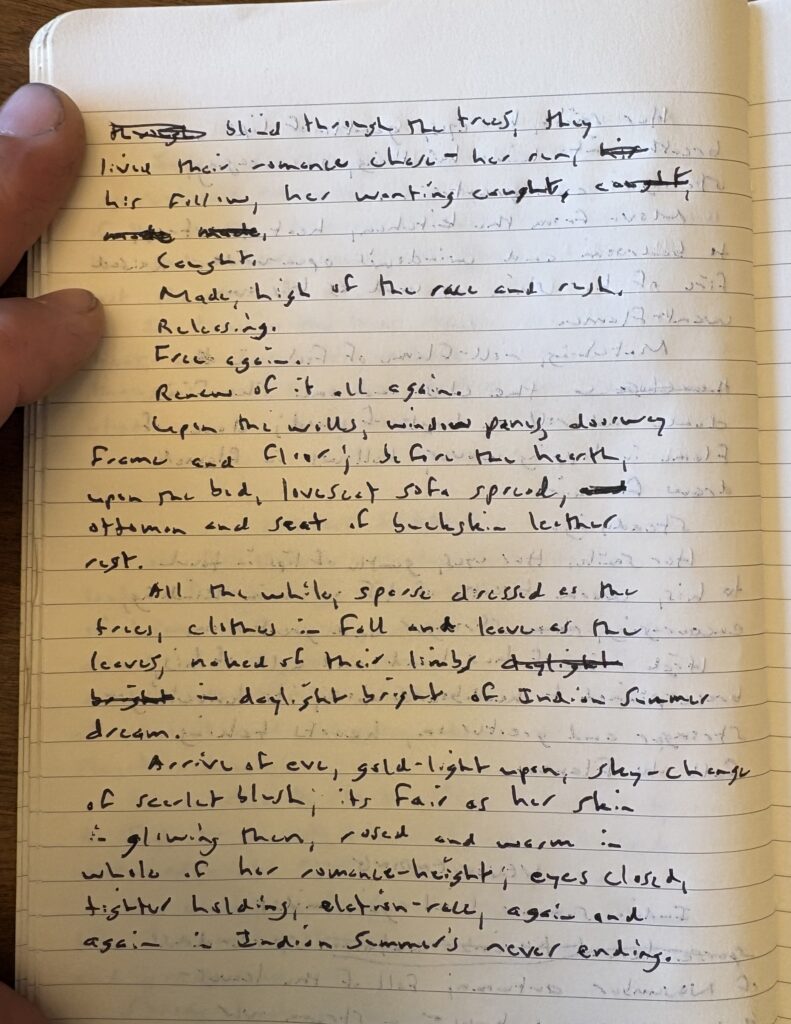 through blind through the trees, they
lived their romance chase – her run, his
his follow, her wanting caught, caught,
made made,
Caught.
Made, high of the race and rush.
Releasing.
Free again.
Renew of it all again.
Upon the walls, window panes, doorway
frame and floor; before the hearth,
upon the bed, loveseat sofa spread, and
ottoman and seat of buckskin leather
rest.
All the while, sparse dressed as the
trees, clothes in fall and leave as the
leaves, naked of their limbs daylight
bright in daylight bright of Indian Summer
dream.
Arrive of eve, gold-light upon, sky-change
of scarlet blush; its fair as her skin
in glowing then, rosed and warm in
whole of her romance-height; eyes closed,
tighter holding, elation-race, again and
again in Indian Summer's never ending.